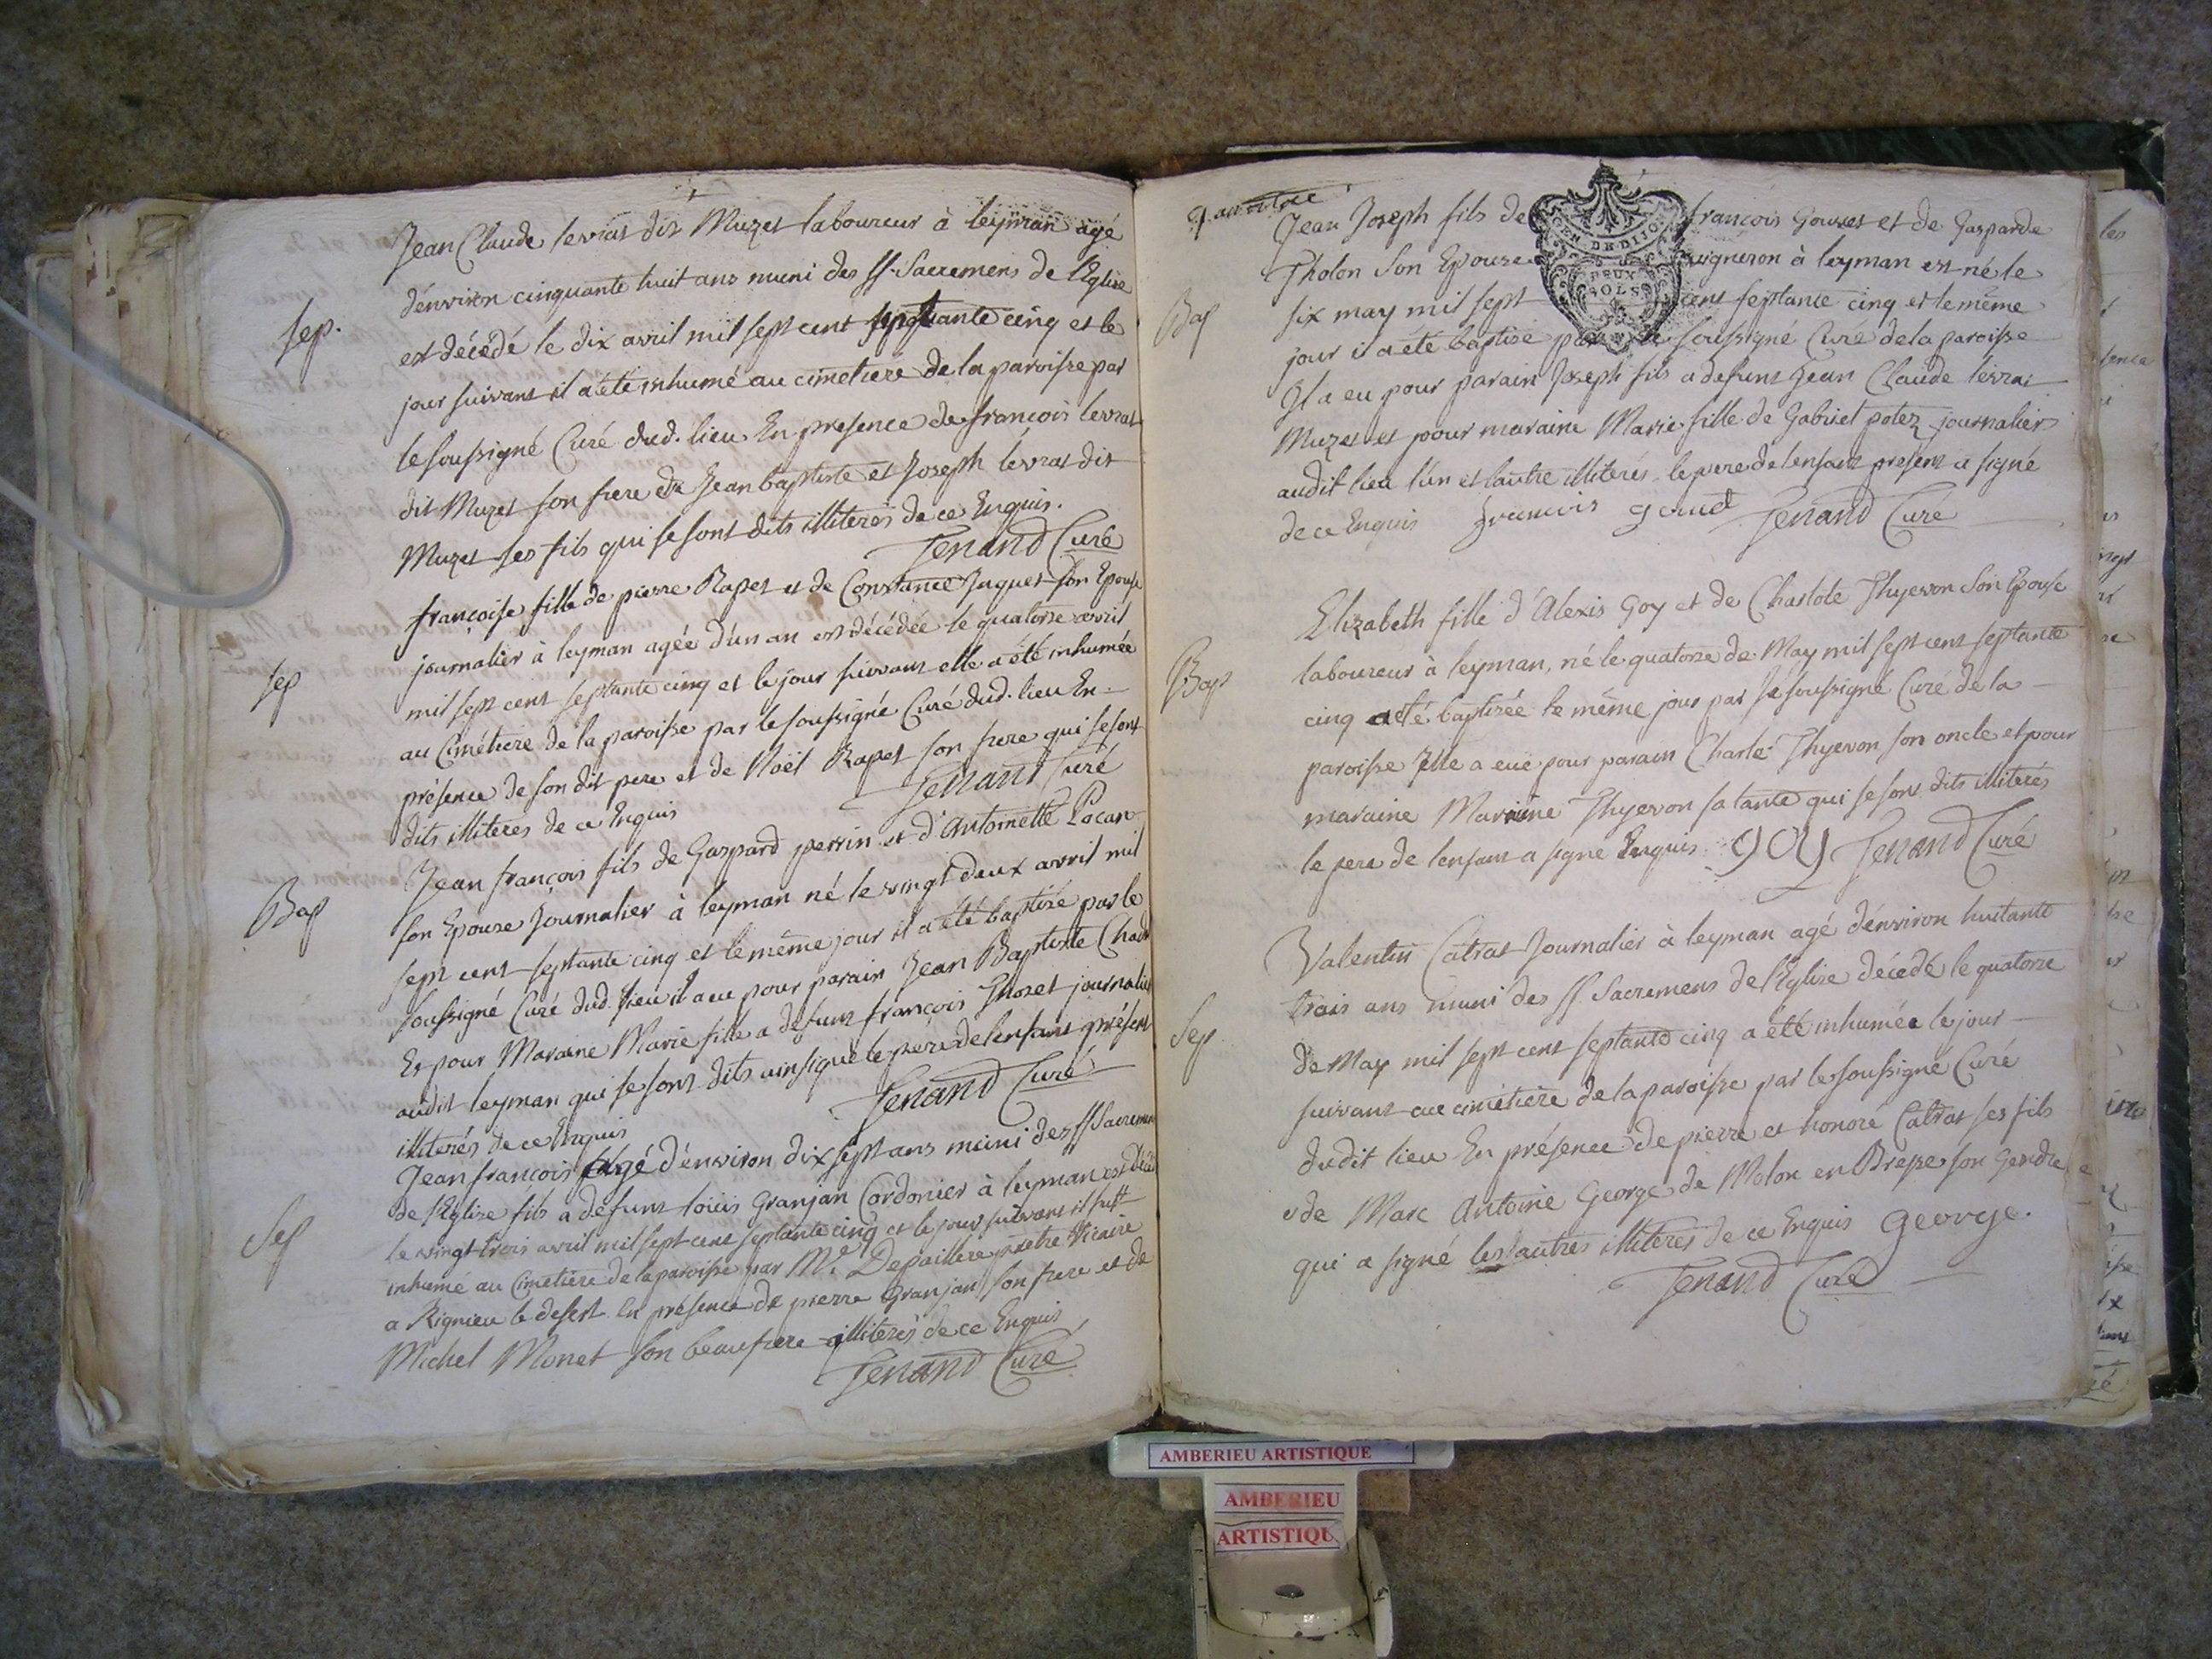 Jean Claude levrat dit Muzet laboureur à leyman agé
d'environ cinquante huit ans muni des SS. Sacremens de l'Eglise
Sep.
est décédé le dix avril mil sept cent septante cinq et le
jour suivant il a été inhumé au cimetiere de la paroisse par
le soussigné Curé dud. lieu En presence de francois levrat
dit Muzet son frere et de Jean baptiste et Joseph levrat dit
Muzet ses fils qui se sont dits illiterés de ce Enquis.
Fenand Curé
françoise fille de pierre Rapet et de Constance Juquet son Epouse
journalier à leyman agée d'un an est décédée le quatorze avril
Sep
mil sept cent septante cinq et le jour suivant elle a été inhumée
au Cimétiere de la paroisse par le soussigné Curé dud. lieu En
présence de son dit pere et de Noël Rapet son frere qui se sont
dits illiteres de ce Enquis
Fenand Curé
Jean françois fils de Gaspard perrin et d'Antoinette
Bap
son Epouse Journalier à leyman né le vingt deux avril mil
sept cent septante cinq et le même jour il a été baptisé par le
soussigné Curé dud. lieu il a eu pour parain Jean Baptiste
Et pour Maraine Marie fille a defunt françois journalier
audit leyman qui se sont dits ainsi que le pere de l'enfant présent
illiterés de ce Enquis
Fenand Curé
Jean françois agé d'environ dix sept ans muni des SS Sacremens
de l'Eglise fils a defunt loüis Granjan Cordonier à leyman est décédé
Sep
le vingt trois avril mil sept cent septante cinq et le jour suivant il fut
inhumé au Cimetiere de la paroisse par Mr. Depaillere prêtre Vicaire
a Rignieu le desert En présence de pierre Granjan son frere et de
Michel Monet son beaufrere illiterés de ce Enquis
Fenand Curé
Jean Joseph fils de françois Gouset et de Gasparde
GEN DE DIJON
DEUX
SOLS
Tholon Son Epouse vigneron à leyman est né le
Bap
six may mil sept cent septante cinq et le même
jour il a été baptisé par le soussigné Curé de la paroisse
Il a eu pour parain Joseph fils a defunt Jean Claude levrat
Muzet et pour maraine Marie fille de Gabriel potez journalier
audit lieu l'un et l'autre illiterés. le pere de l'enfant présent a signé
de ce Enquis francois Fenand Curé
Elizabeth fille d'Alexis Goy et de Charlote Thyevon Son Epouse
Bap
laboureur à leyman, né le quatorze de May mil sept cent septante
cinq a été baptizée le même jour par le soussigné Curé de la
paroisse Elle a eüe pour parain Charle Thyevon son oncle et pour
maraine Mariane Thyevon sa tante qui se sont dits illiterés
le pere de l'enfant a signé Enquis goy Fenand Curé
Valentin Catrat Journalier à leyman agé d'énviron huitante
trois ans muni des SS. Sacremens de l'Eglise décedé le quatorze
Sep.
de May mil sept cent septante cinq a été inhumée le jour
suivant au cimetiere de la paroisse par le soussigné Curé
dudit lieu En présence de pierre et honoré Catrat ses fils
et de Marc Antoine George de Molon en Bresse son Gendre
qui a signé les autres illiterés de ce Enquis George.
Fenand Curé
AMBERIEU ARTISTIQUE
AMBERIEU
ARTISTIQU